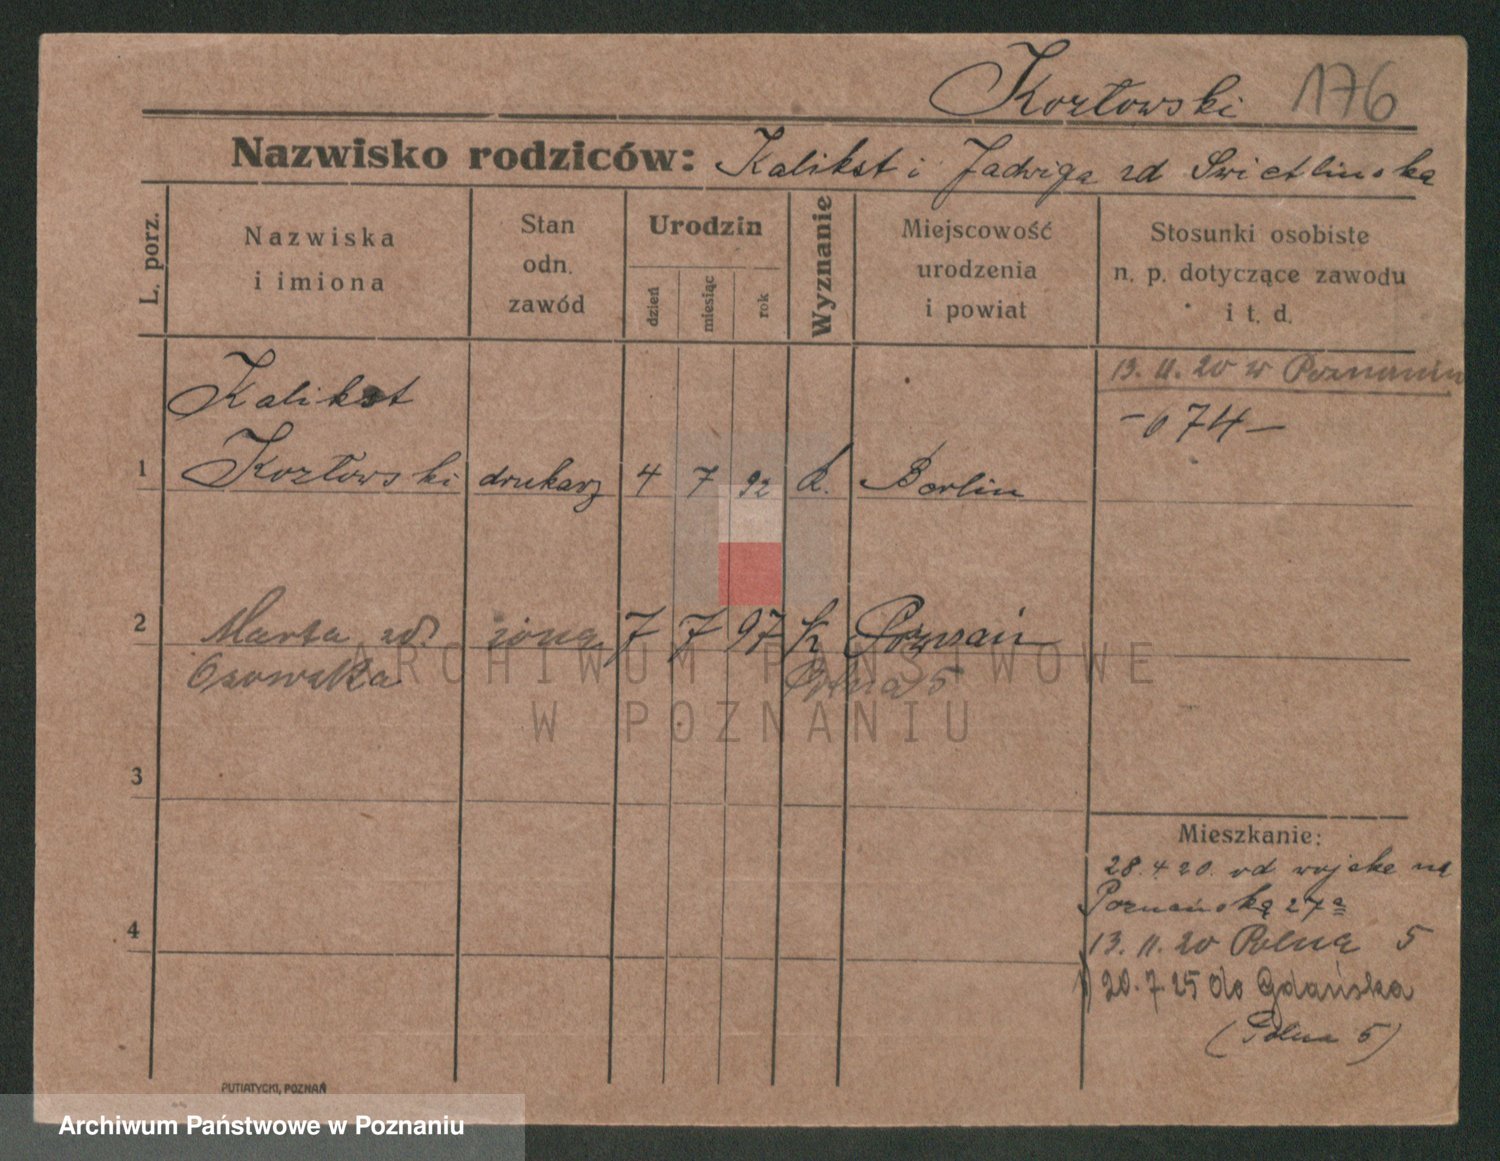 Kozłowski 176
Nazwisko rodziców: Kalikst i Jadwiga zd Swietlinska
L. porz.
Nazwiska i imiona
Stan odn. zawód
Urodzin
dzień
miesiąc
rok
Wyznanie
Miejscowość urodzenia i powiat
Stosunki osobiste n. p. dotyczące zawodu i t. d.
13. 11. 20 w Poznaniu
Kalikst
- 674 -
1 Kozłowski drukarz 4 7 92 k. Berlin
2 Marta zd żona 7 7 97 k Poznań
Ossowska Polna 5
3
4
Mieszkanie:
28. 4 20. od wojska na
Poznańską 27a
13. 11. 20 Polna 5
20. 7 25 do Gdańska
(Polna 5)
PUTIATYCKI, POZNAŃ
ARCHIWUM PAŃSTWOWE
W POZNANIU
Archiwum Państwowe w Poznaniu